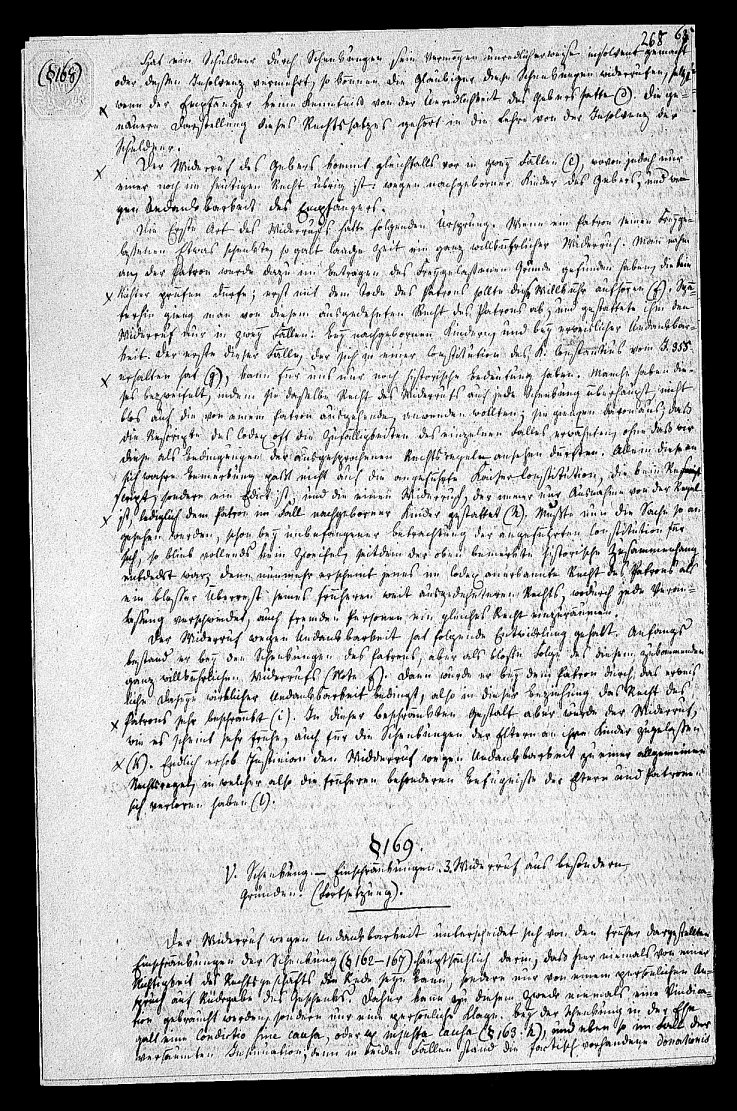 268 68
(§168)
Hat ein Schuldner durch Schenkungen sein Vermögen unredlicherweise insolvent gemacht
oder dessen Insolvenz vermehrt, so können die Gläubiger diese Schenkungen widerrufen, selbst
wenn der Empfänger keine Kenntniß von der Unredlichkeit des Gebers hatte (d). Die ge-
nauere Darstellung dieses Rechtssatzes gehört in die Lehre von der Insolvenz der
Schuldner.
Der Widerruf des Gebers kommt gleichfalls vor in zwey Fällen (e), wovon jedoch nur
einer noch im heutigen Recht übrig ist: wegen nachgeborner Kinder des Gebers, und we-
gen Undankbarkeit des Empfängers.
Die Erste Art des Widerrufs hatte folgenden Ursprung. Wenn ein Patron seinem Freyge-
lassenen Etwas schenkte, so galt lange Zeit ein ganz willkührlicher Widerruf. Man nahm
an, der Patron werde dazu im Betragen des Freygelassenen Gründe gefunden haben, die kein
Richter prüfen dürfe; erst mit dem Tode des Patrons sollte diese Willkühr aufhören (f). Spä-
terhin gieng man von diesem ausgedehnten Recht des Patrons ab, und gestattete ihm den
Widerruf nur in zwey Fällen: bey nachgebornen Kindern, und bey erweislicher Undankbar-
keit. Der erste dieser Fälle, der sich in einer Constitution des K. Constantius vom J. 355
erhalten hat (g), kann für uns nur noch historische Bedeutung haben. Manche haben die-
ses bezweifelt, indem sie dasselbe Recht des Widerrufs auch jede Schenkung überhaupt, nicht
blos auf die von einem Patron ausgehende, anwenden wollten; sie giengen davon aus, daß
die Rescripte des Codex oft die Zufälligkeiten des einzelnen Falles erwähnten, ohne daß wir
diese als Bedingungen der ausgesprochenen Rechtsregeln ansehen dürften. Allein diese an
sich wahre Bemerkung paßt nicht auf die angeführte Kaiserconstitution, die kein Re-
script, sondern ein Edict ist, und die einen Widerruf, der immer nur Ausnahme von der Regel
ist, lediglich dem Patron im Fall nachgeborner Kinder gestattet (h). Mußte nun die Sache so an-
gesehen werden, schon bey unbefangener Betrachtung der angeführten Constitution für
sich, so blieb vollends kein Zweifel, seitdem der oben bemerkte historische Zusammenhang
entdeckt war; denn nunmehr erscheint jenes im Codex anerkannte Recht des Patrons als
ein bloßer Überrest seines früheren weit ausgedehnteren Rechts, wodurch jede Veran-
lassung verschwindet, auch fremden Personen ein gleiches Recht einzuräumen.
Der Widerruf wegen Undankbarkeit hat folgende Entwicklung gehabt. Anfangs
bestand er bey den Schenkungen des Patrons, aber als bloße Folge des diesem zukommenden
ganz willkührlichen Widerrufs (Note f). Dann wurde er bey dem Patron durch das erweis-
liche Daseyn wirklicher Undankbarkeit bedingt, also in dieser Beziehung das Recht des
Patrons sehr beschränkt (i). In dieser beschränkten Gestalt aber wurde der Widerruf,
wie es scheint sehr frühe, auch für die Schenkungen der Eltern an ihre Kinder zugelassen
(k). Endlich erhob Justinian den Widerruf wegen Undankbarkeit zu einer allgemeinen
Rechtsregel, in welcher also die früheren besonderen Befugnisse der Eltern und Patrone
sich verloren haben (l).
§169.
V. Schenkung. — Einschränkungen. 3. Widerruf aus besondern
Gründen. (Fortsetzung).
Der Widerruf wegen Undankbarkeit unterscheidet sich von den früher dargestellten
Einschränkungen der Schenkung (§ 162–167) hauptsächlich darin, daß hier niemals von einer
Nichtigkeit des Rechtsgeschäfts die Rede seyn kann, sondern nur von einem persönlichen An-
spruch auf Rückgabe des Geschenks. Daher kann zu diesem Zweck niemals eine Vindica-
tion gebraucht werden, sondern nur eine persönliche Klage. Bey der Schenkung in der Ehe
galt eine condictio sine causa, oder ex injusta causa (§ 163. h), und eben so im Fall der
versäumten Insinuation; denn in beiden Fällen stand die factisch vorhandene donationis